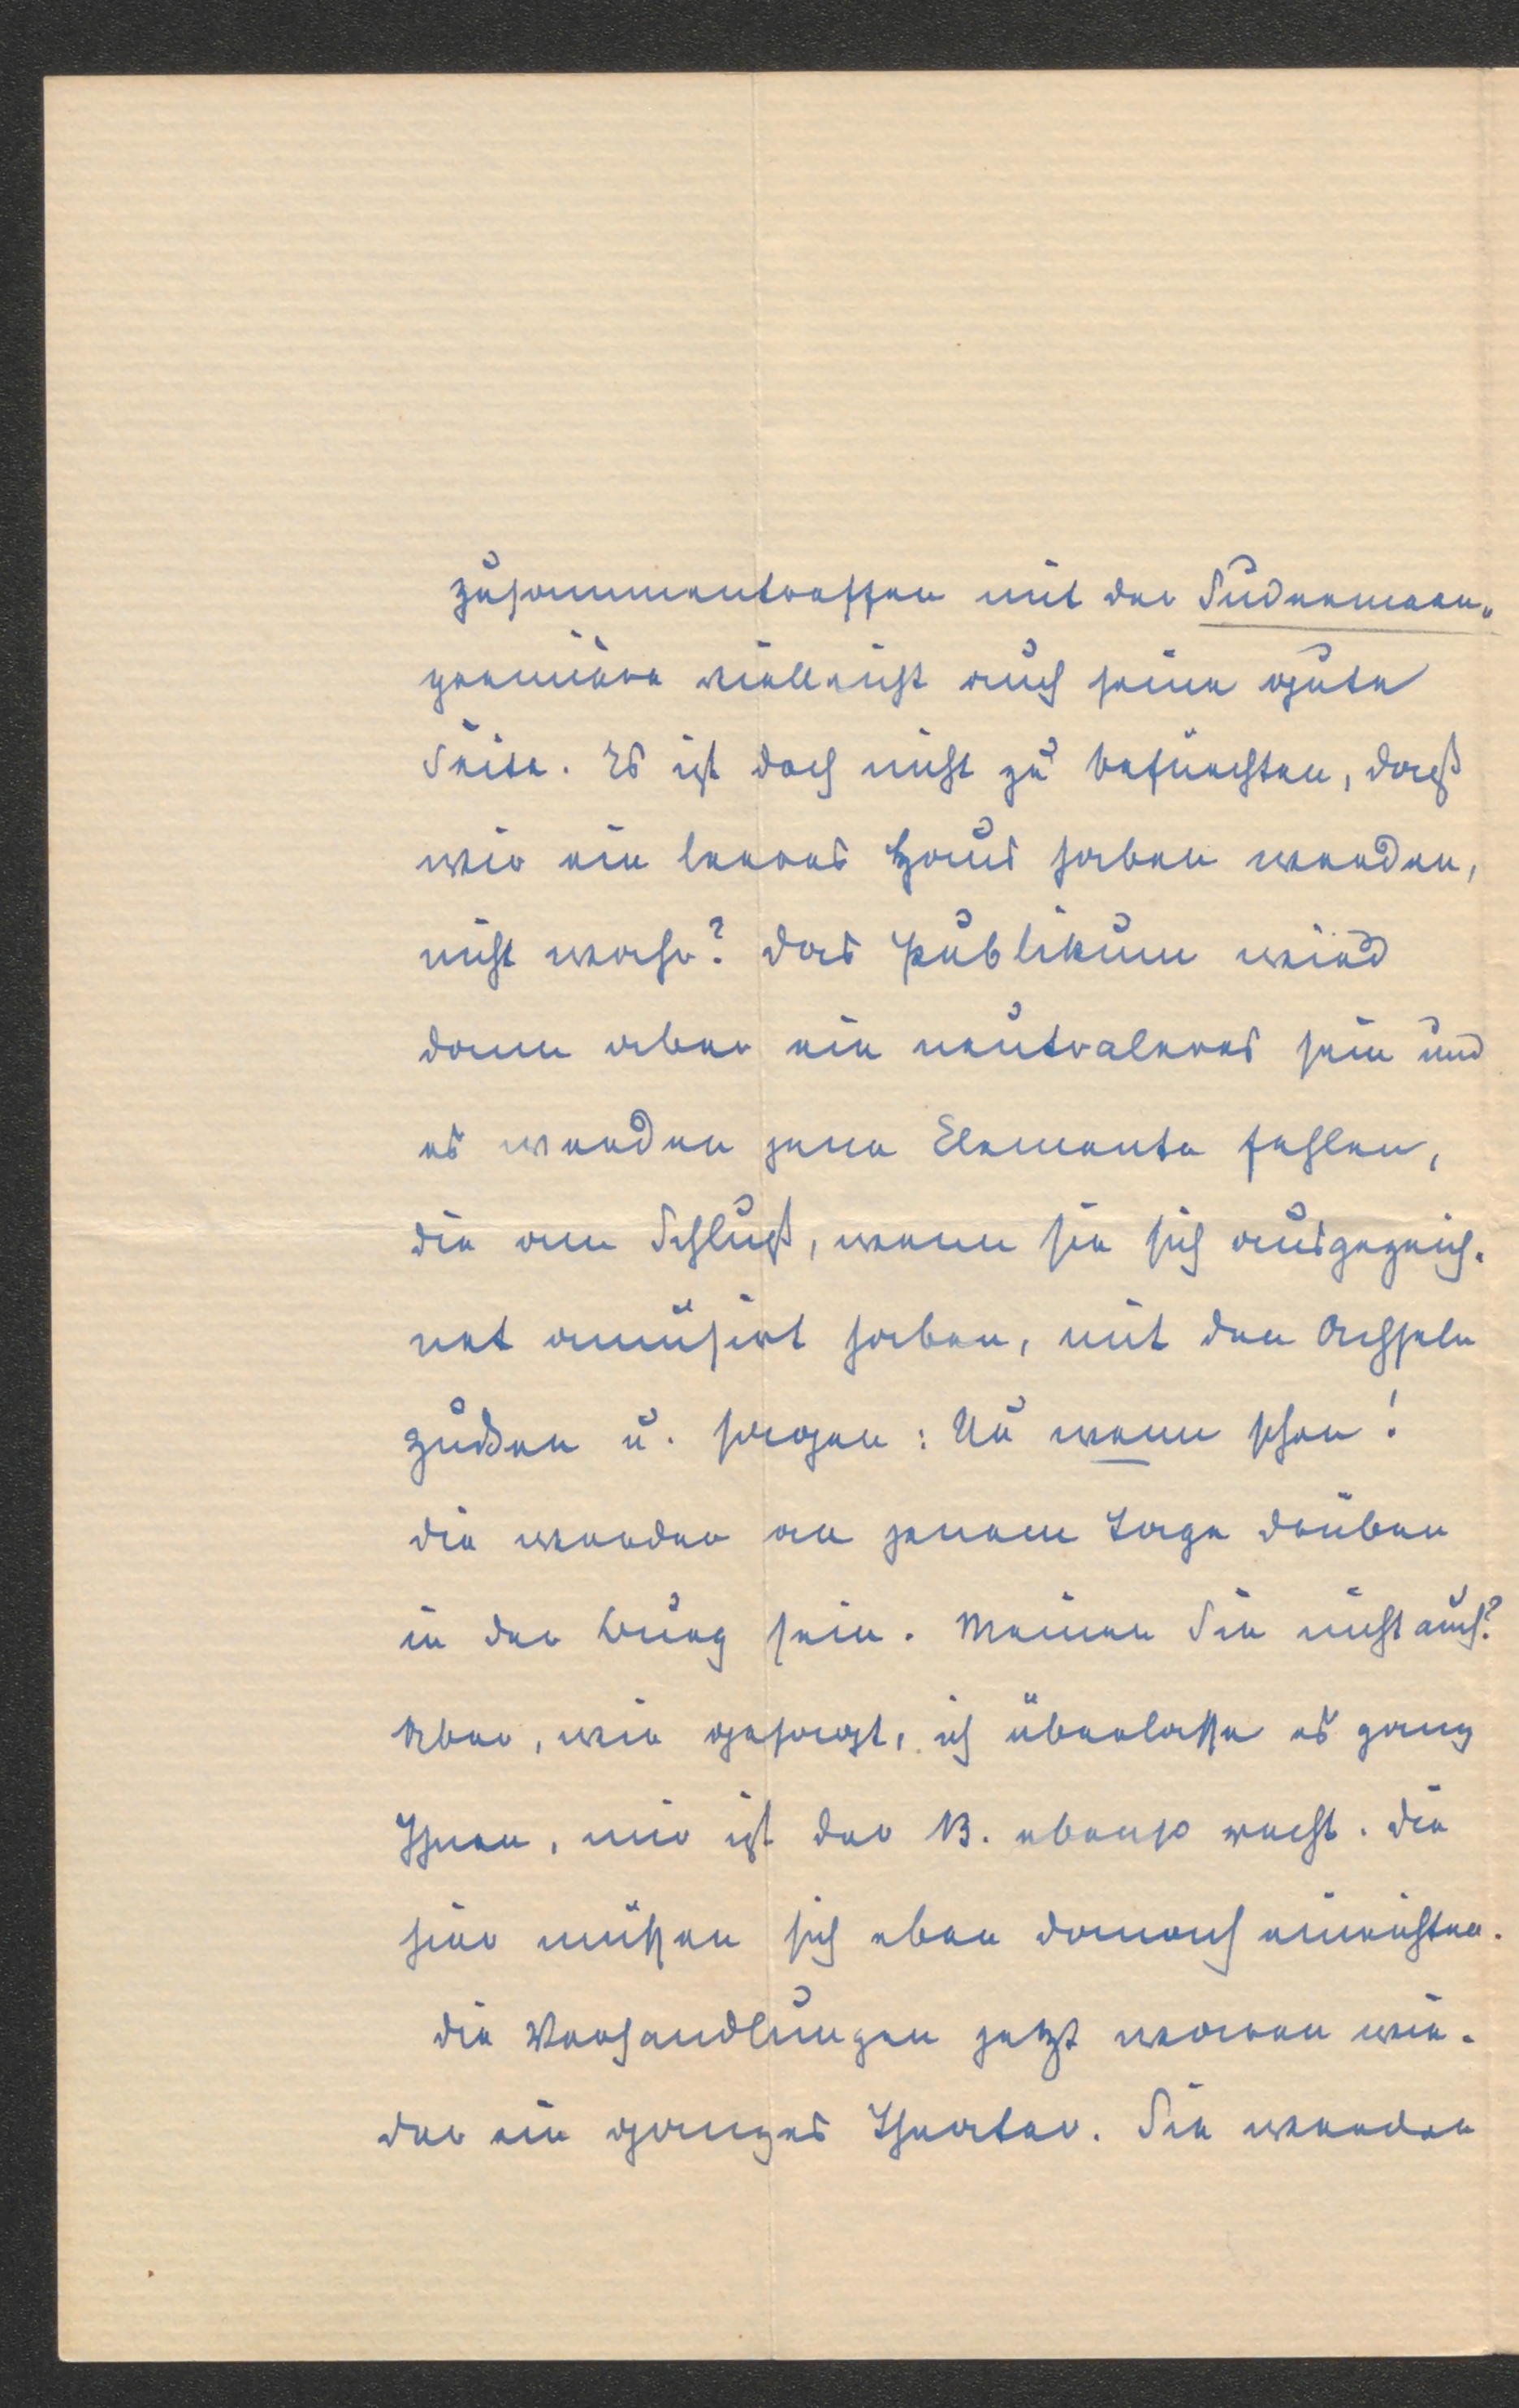 Zusammentreffen mit der Sudermann-
première vielleicht auch seine gute
Seite. Es ist doch nicht zu befürchten, daß
wir ein leeres Haus haben werden,
nicht wahr? Das Publikum wird
dann aber ein neutraleres sein und
es werden jene Elemente fehlen,
die am Schluß, wenn sie sich ausgezeich-
net amüsirt haben, mit den Achseln
zucken u. sagen: Nu wenn schon!
Die werden an jenem Tage drüben
in der Burg sein. Meinen Sie nicht auch?
Aber, wie gesagt, ich überlasse es ganz
Ihnen, mir ist der 13. ebenso recht. Die
hier müssen sich eben danach einrichten.
Die Verhandlungen jetzt waren wie-
der ein ganzes Theater. Sie werden